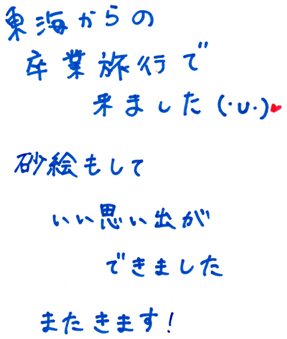 東海からの
卒業旅行で
来ました(･u･)♥
砂絵もして
いい思い出が
できました
またきます!